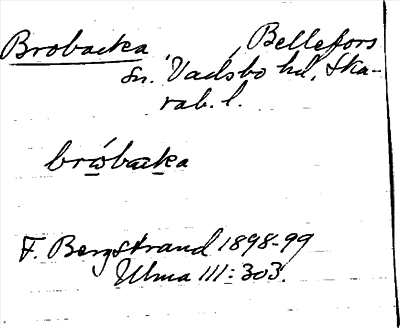 Brobacka, Bellefors
sn. Vadsbo hd, Ska-
rab. l.
bróbacka
F. Bergstrand 1898-99
Ulma 111:303.